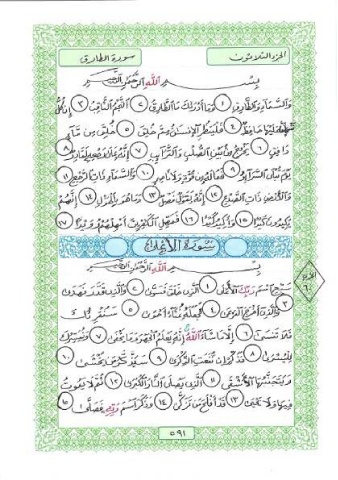 الجزء الثلاثون
سورة الطارق
بسم الله الرحمن الرحيم
والسماء والطارق ١ وما أدرىك ما الطارق ٢ النجم الثاقب ٣ إن كل
نفس لما عليها حافظ ٤ فلينظر الإنسن مم خلق ٥ خلق من ماء
دافق ٦ يخرج من بين الصلب والترائب ٧ إنه على رجعه لقادر ٨
يوم تبلى السرائر ٩ فما له من قوة ولا ناصر ١٠ والسماء ذات الرجع ١١
والأرض ذات الصدع ١٢ إنه لقول فصل ١٣ وما هو بالهزل ١٤ إنهم
يكيدون كيدا ١٥ وأكيد كيدا ١٦ فمهل الكفرين أمهلهم رويدا ١٧
سورة الأعلى
بسم الله الرحمن الرحيم
سبح اسم ربك الأعلى ١ الذي خلق فسوى ٢ والذي قدر فهدى
٣ والذي أخرج المرعى ٤ فجعله غثاء أحوى ٥ سنقرئك
فلا تنسى ٦ إلا ما شاء الله إنه يعلم الجهر وما يخفى ٧ ونيسرك
لليسرى ٨ فذكر إن نفعت الذكرى ٩ سيذكر من يخشى ١٠
ويتجنبها الأشقى ١١ الذي يصلى النار الكبرى ١٢ ثم لا يموت
فيها ولا يحيى ١٣ قد أفلح من تزكى ١٤ وذكر اسم ربه فصلى ١٥
الحزب
٦٠
٥٩١